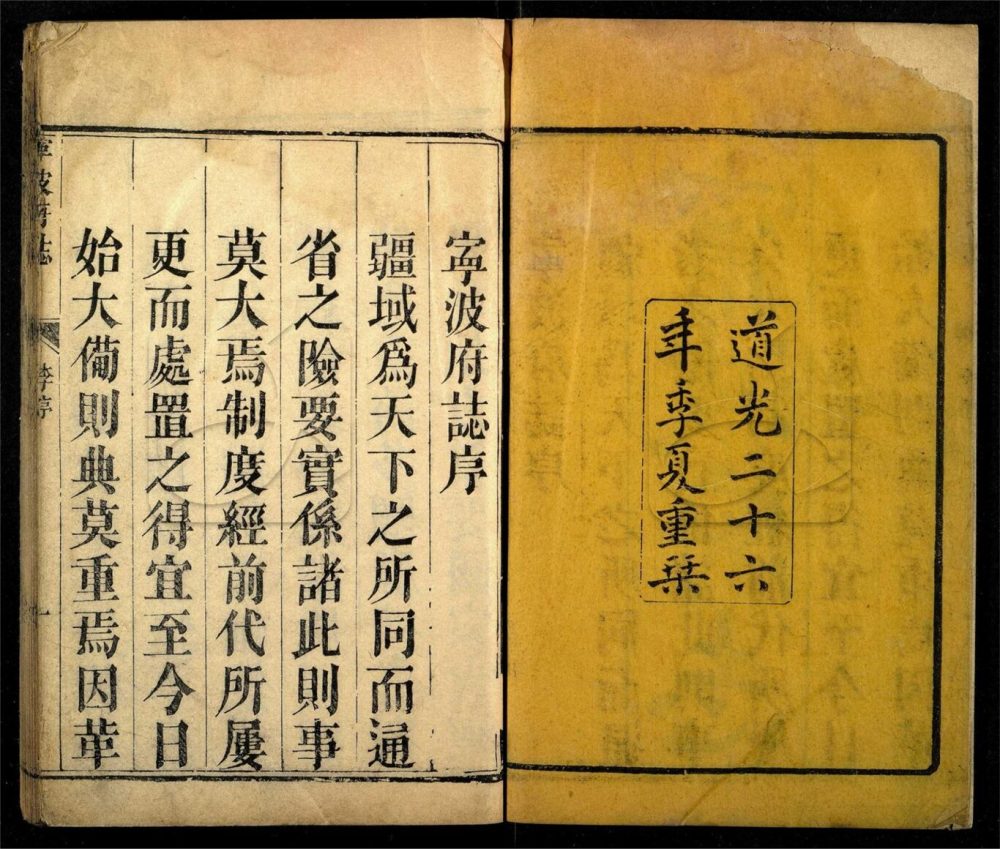 道光二十六
年季夏重栞
寧波府誌序
疆域爲天下之所同而通
省之險要實係諸此則事
莫大焉制度經前代所屢
更而處置之得宜至今日
始大備則典莫重焉因革
寧波府誌
李序
一